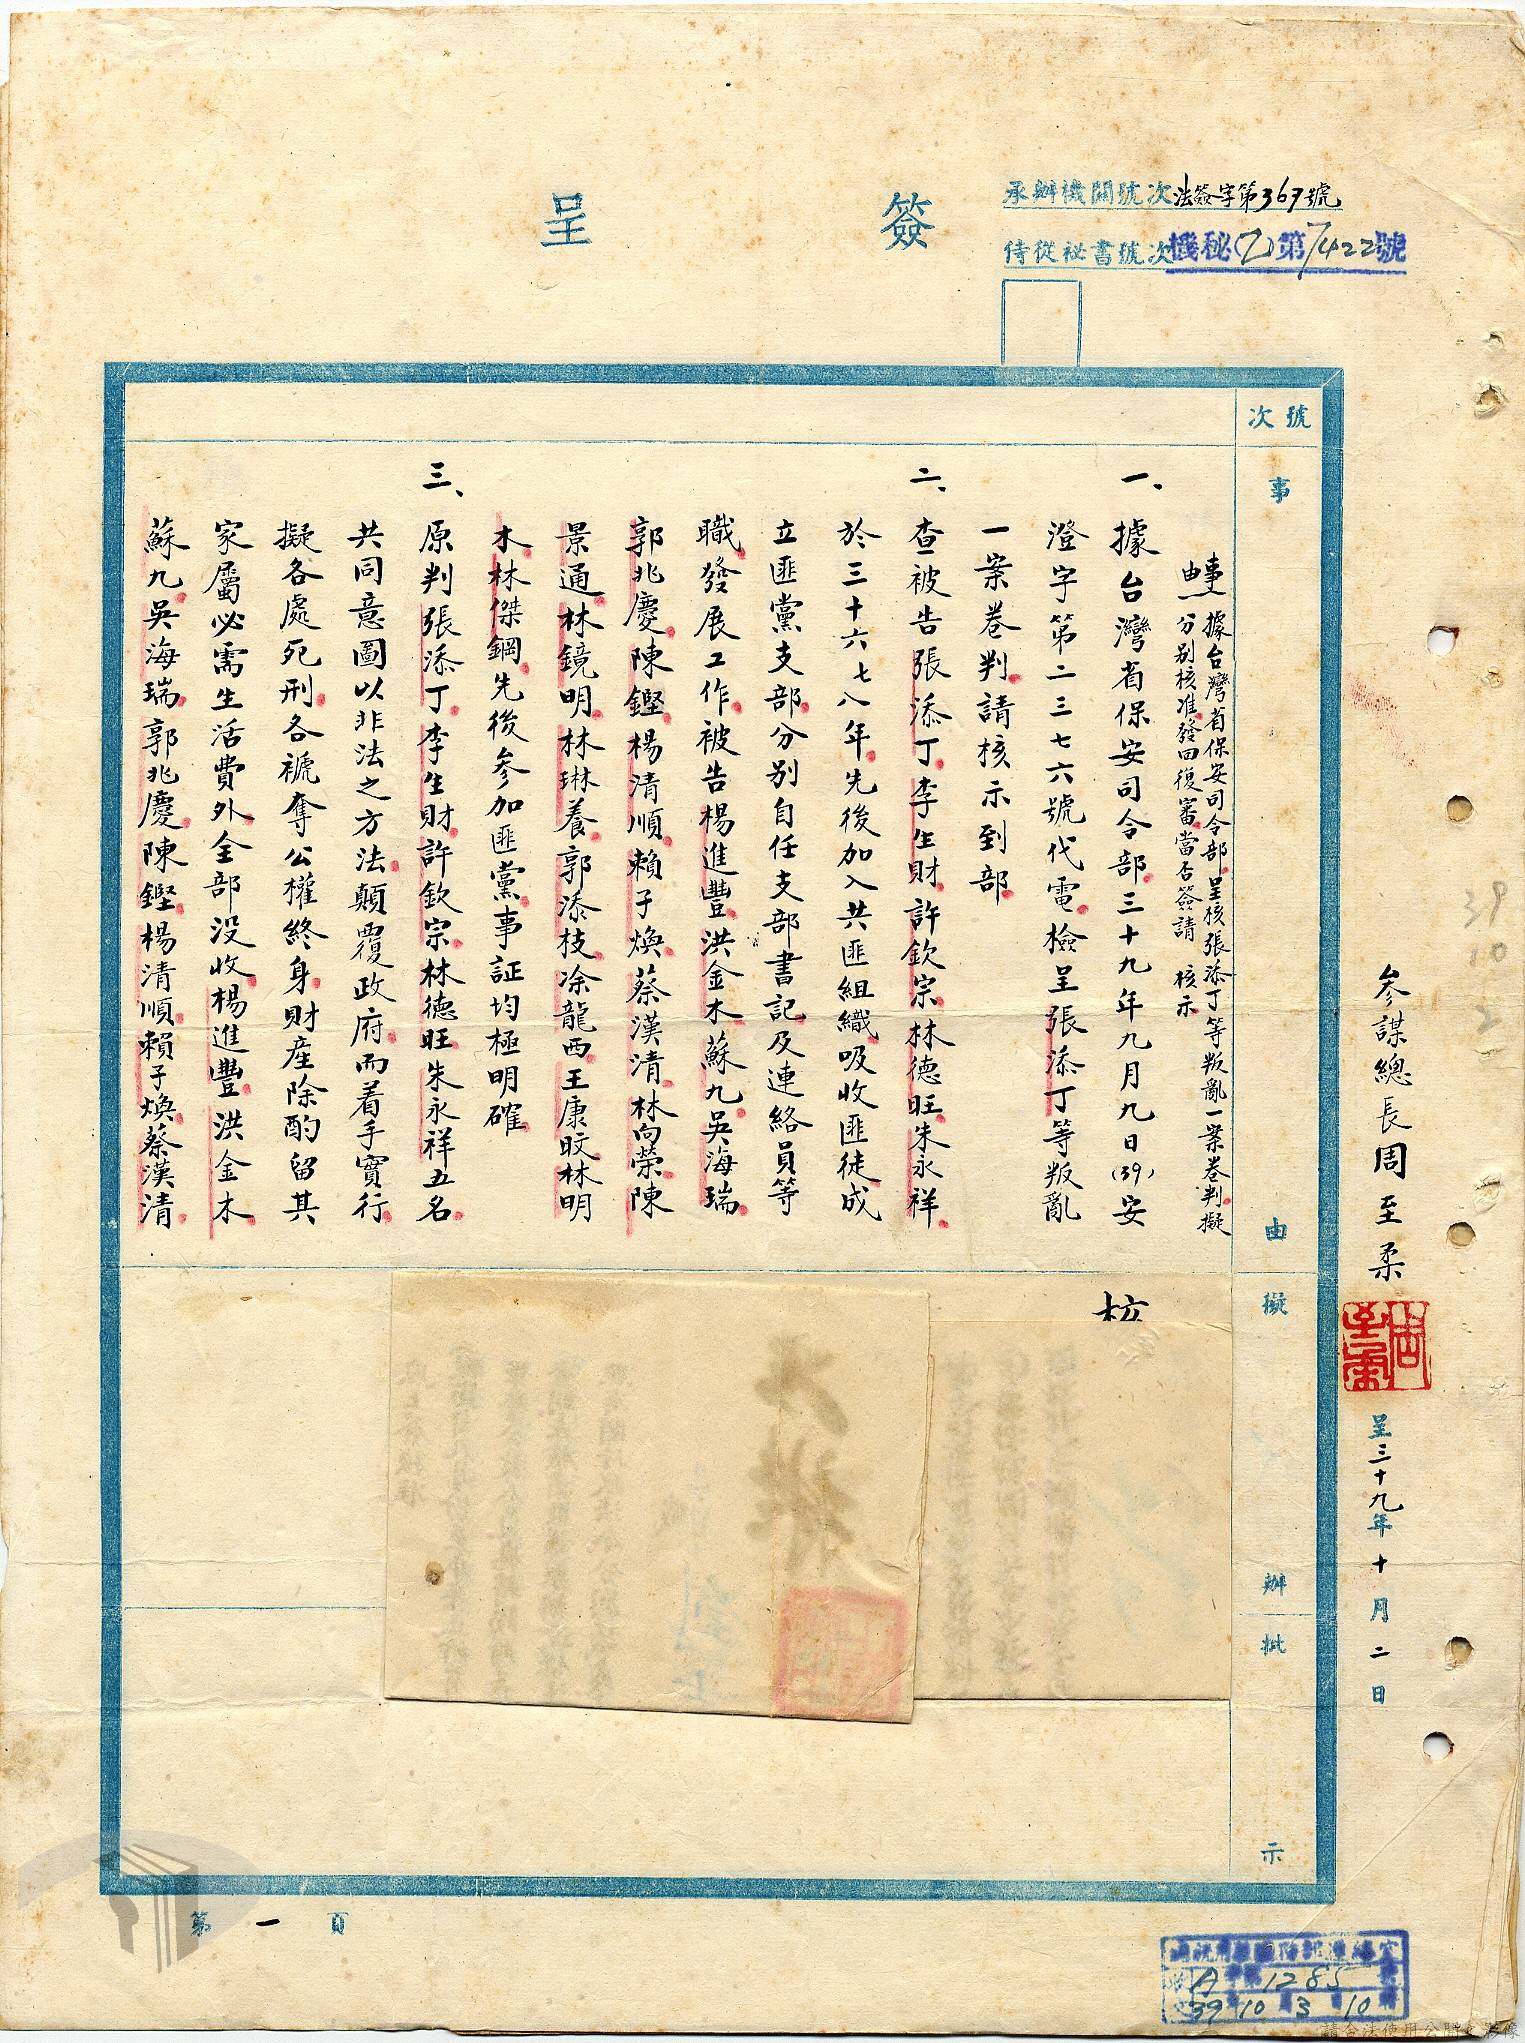 簽呈
承辦機關號次法簽字第367號
侍從祕書號次機秘(乙)第7422號
號次
事由
擬辦
批示
參謀總長周至柔
周至柔
呈三十九年十月二日
39
10
2
事由
據台灣省保安司令部呈核張添丁等叛亂一案卷判擬
分別核准發回復審當否簽請 核示
一、據台灣省保安司令部三十九年九月九日(39)安
澄字第二三七六號代電檢呈張添丁等叛亂
一案卷判請核示到部
二、查被告張添丁李生財許欽宗林德旺朱永祥
於三十六七八年先後加入共匪組織吸收匪徒成
立匪黨支部分別自任支部書記及連絡員等
職發展工作被告楊進豐洪金木蘇九吳海瑞
郭兆慶陳鏗楊清順賴子煥蔡漢清林向榮陳
景通林鏡明林琳養郭添枝凃龍西王康旼林明
木林傑鋼先後參加匪黨事証均極明確
三、原判張添丁李生財許欽宗林德旺朱永祥五名
共同意圖以非法之方法顛覆政府而着手實行
擬各處死刑各褫奪公權終身財產除酌留其
家屬必需生活費外全部没收楊進豐洪金木
蘇九吳海瑞郭兆慶陳鏗楊清順賴子煥蔡漢清
第一頁
A 1285
39 10 3 10